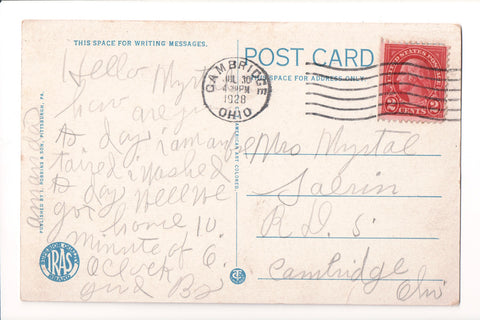 THIS SPACE FOR WRITING MESSAGES.
POST CARD
THIS SPACE FOR ADDRESS ONLY.
CAMBRIDGE
JUL 30
4-30PM
1928
OHIO
2 CENTS 2
Hello
how are you
to day i am
i washed
to day Well we
got home 10
minute of 6.
Oclock
and By
amanda
PUBLISHED BY I. ROBBINS & SON, PITTSBURGH, PA.
IRAS
AMERICAN ART COLORED
Mrs
R.D. 5
Cambridge
Ohio